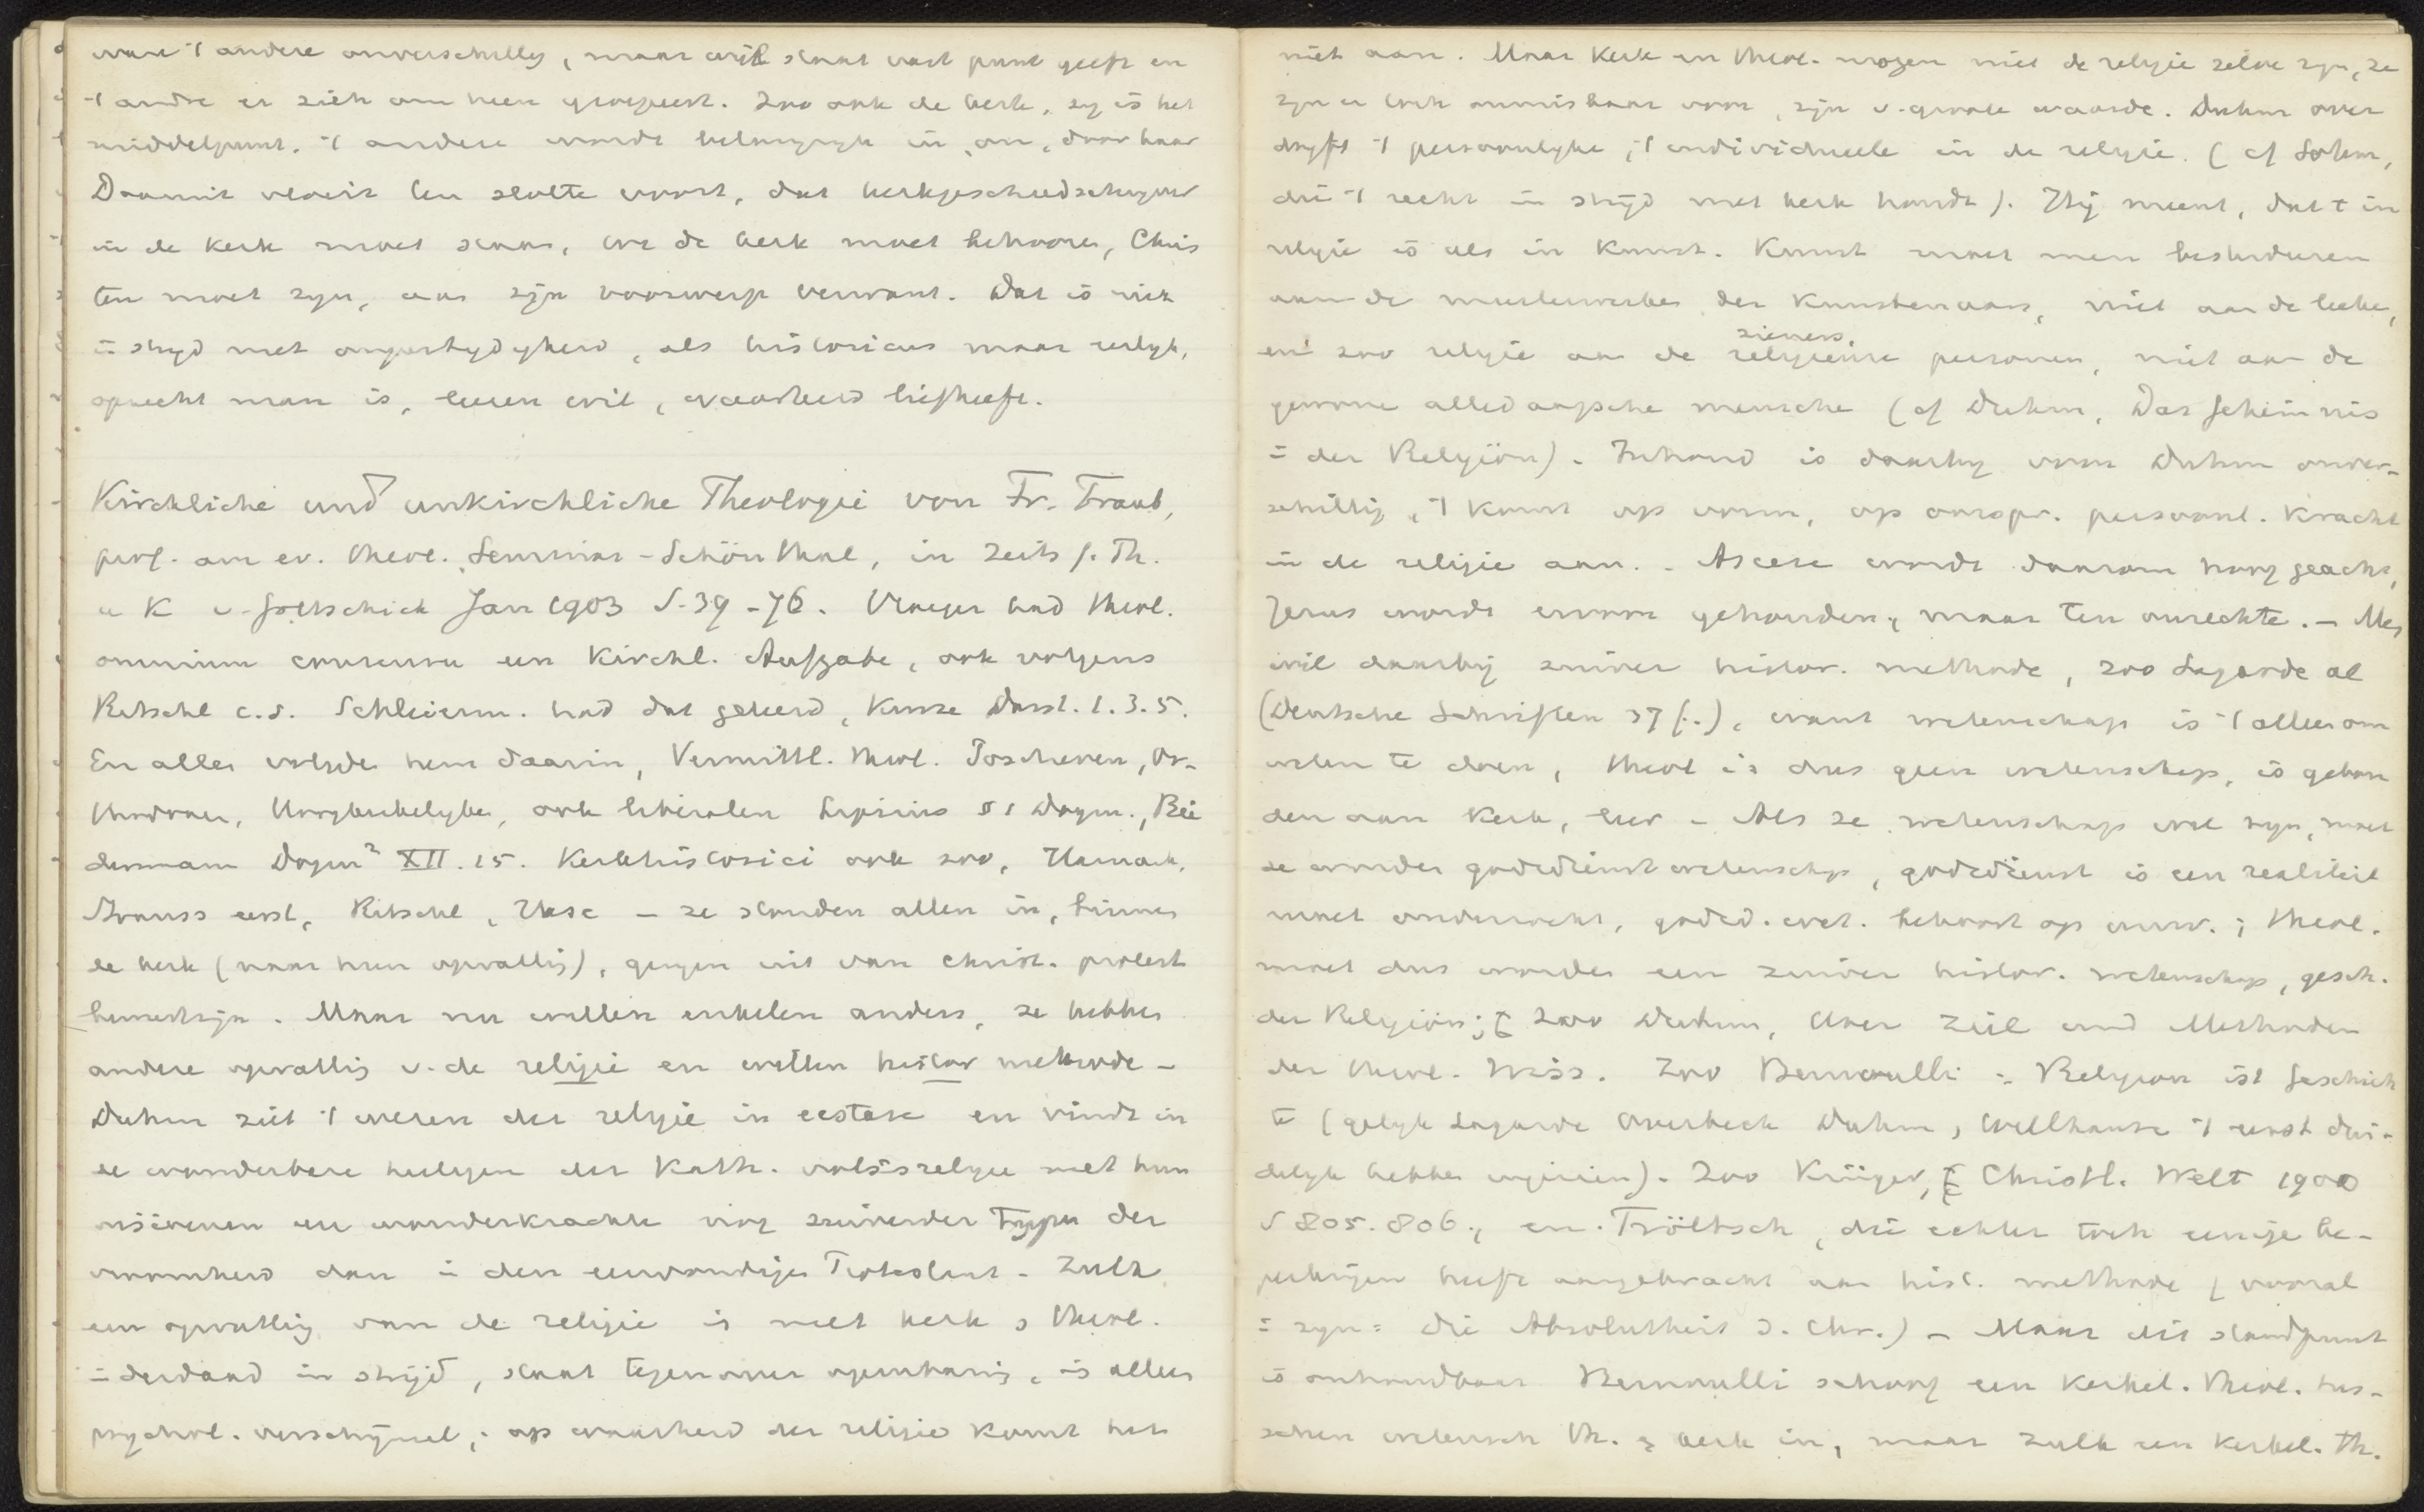 ware 't andere onverschillig, maar wijl staat vast punt geeft en
't andre er zich om heen groepeert. Zoo ook de kerk, zy is het
middelpunt. 't andere wordt belangryk in, om, door haar
Daaruit vloeit ten slotte voort, dat kerkgeschiedschryver
in de Kerk moet staan, tot de kerk moet behooren, Chris
ten moet zyn, aan zijn voorwerp verwant. Dat is niet
in stryd met onpartydigheid, als historicus maar eerlyk,
oprecht man is, leeren wil, waarheid liefheeft.
Kirchliche und unkirchliche Theologie von Fr. Traub,
prof. am ev. theol. Seminar - Schönthal, in Zeits f. Th.
u K v. Gottschick Jan 1903 S. 39 - 76. Vroeger had theol.
omnium consensu een Kirchl. Aufgabe, ook volgens
Ritschl c.s. Schleierm. had dat geleerd, Kurze Darst. 1. 3. 5.
En allen volgden hem daarin, Vermittl. theol.
Confess. ook liberalen Lipsius § 1 Dogm., Bie
dermann Dogm² XII. 15. Kerkhistorici ook zoo, Harnack,
Krauss eerst, Ritschl, Hase - ze stonden allen in, binnen
de kerk (naar hun opvatting), gingen uit van christ. protest
beinselen. Maar nu willen enkelen anders, ze hebben
andere opvatting v. de religie en willen histor methode -
Duhm ziet 't wezen der religie in ecstase en vindt in
de wonderbare heiligen der Kath. volksreligie met hun
visioenen en wonderkrachten nog zuiverder Typen der
vroomheid dan in den eenvoudigen Protestant - Zulk
een opvatting van de religie is met kerk & theol.
inderdaad in strijd, staat tegenover openbaring, is alleen
psychol. verschijnsel; op waarheid der religie komt het
niet aan. Maar Kerk en theol. mogen niet de religie zelve zyn, ze
zyn er toch onmisbaar voor, zijn v. groote waarde. Duhm over
dryft 't persoonlyke, 't individueele in de religie. (cf Sohm,
die 't recht in strijd met kerk houdt). Hij meent, dat 't in
religie is als in Kunst. Kunst moet men bestudeeren
aan de meesterwerken der Kunstenaars, niet aan de leeken,
zieners,
en zoo religie aan de religieuse personen, niet aan de
gewone alledaagsche menschen (cf Duhm, Das Geheimnis
in der Religion). Inhoud is daarby voor Duhm onver-
schillig, 't komt op vorm, op oorspr. persoonl. Kracht
in de religie aan. - Ascese wordt daarom hoog geacht,
Jezus wordt ervoor gehouden, maar ten onrechte. - Men
wil daarbij zuiver histor. methode, zoo Lagarde al
(Deutsche Schriften 37 f..), want wetenschap is 't alleen om
weten te doen, theol is dus geen wetenschap, is gebon
den aan Kerk, leer - Als ze wetenschap wil zyn, moet
ze worden godsdienstwetenschap, godsdienst is een realiteit
moet onderzocht, godsd. wet. behoort op univ.; theol.
moet dus worden een zuiver histor. wetenschap, gesch.
der Religion; zoo Duhm, Über Ziel und Methoden
der theol. Wiss. Zoo Bernoulli: Religion ist Geschich
te (gelyk Lagarde Overbeck Duhm, Wellhausen 't eerst dui-
delyk hebben ingezien). Zoo Krüger, Christl. Welt 1900
S 805. 806., en Tröltsch, die echter toch eenige be-
perkingen heeft aangebracht aan hist. methode (vooral
in zyn: Die Absolutheit d. Chr.) - Maar dit standpunt
is onhoudbaar Bernoulli schoof een Kerkel. theol. tus-
schen wetensch th. & kerk in, maar zulk een Kerkel. th.